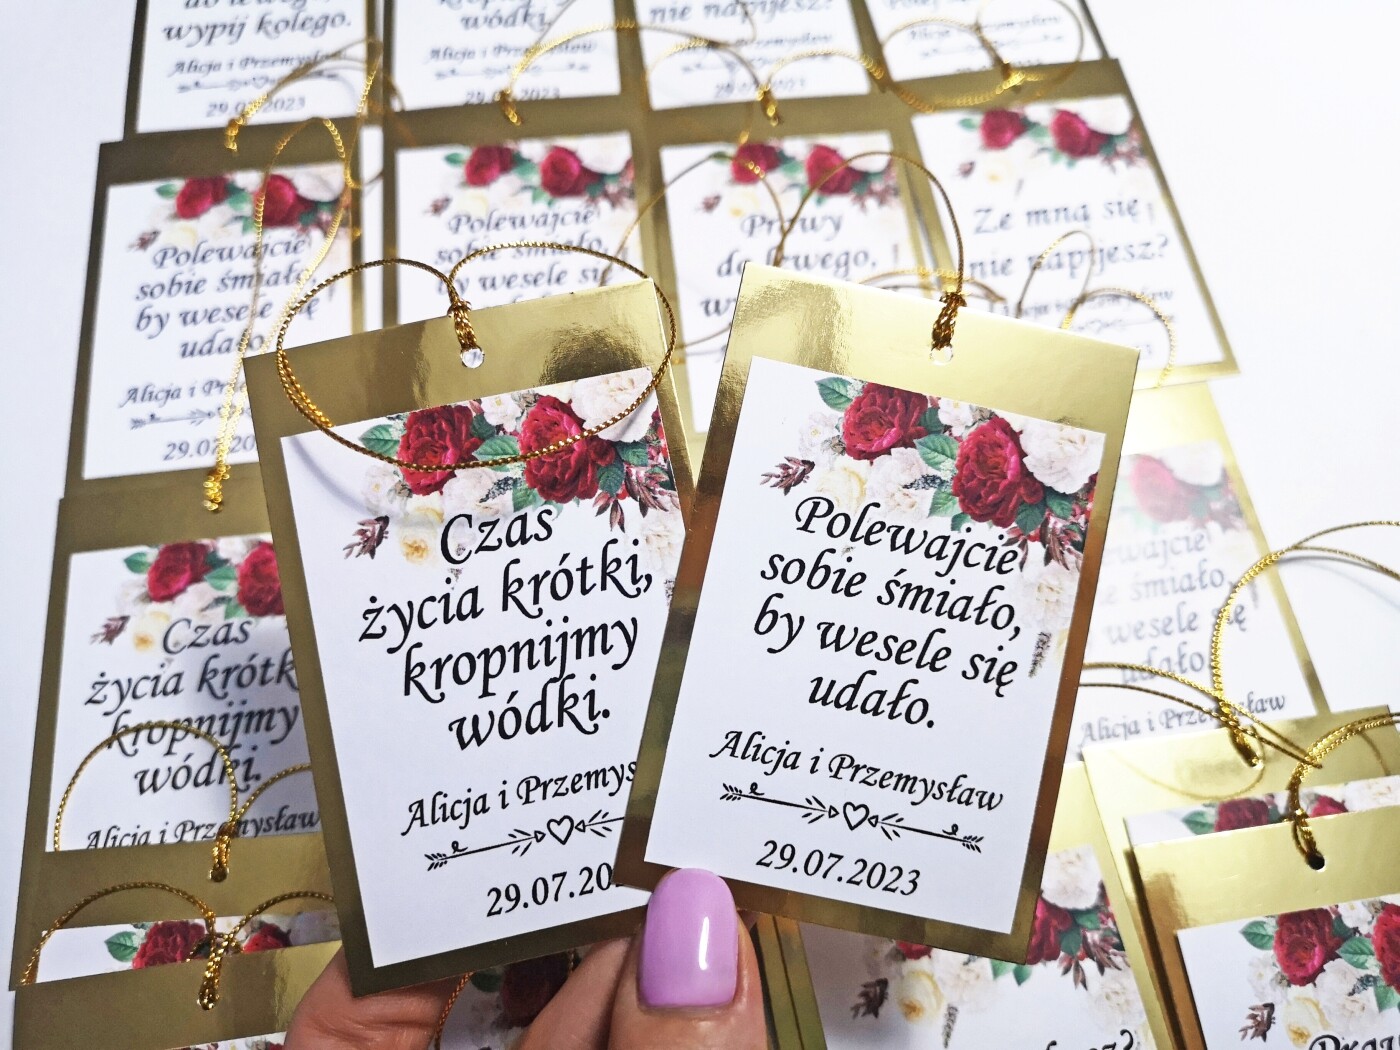 do lewego,
wypij kolego.
Alicja i Przemysław
29.07.2023
wódki.
29.07.2023
nie napijesz?
Polewajcie
sobie śmiało,
by wesele się
udało.
Alicja i Prze
29.07.20
Polewajcie
sobie śmiało,
by wesele się
Prawy
do lewego,
Ze mną się
nie napijesz?
Czas
życia krótki,
kropnijmy
wódki.
Alicja i Przemys
29.07.20
Polewajcie
sobie śmiało,
by wesele się
udało.
Alicja i Przemysław
29.07.2023
Czas
życia krótk
kropnijmy
wódki.
Alicja i Przemysław
ewajcie
e śmiało,
wesele się
udało.
Alicja i Przemysław